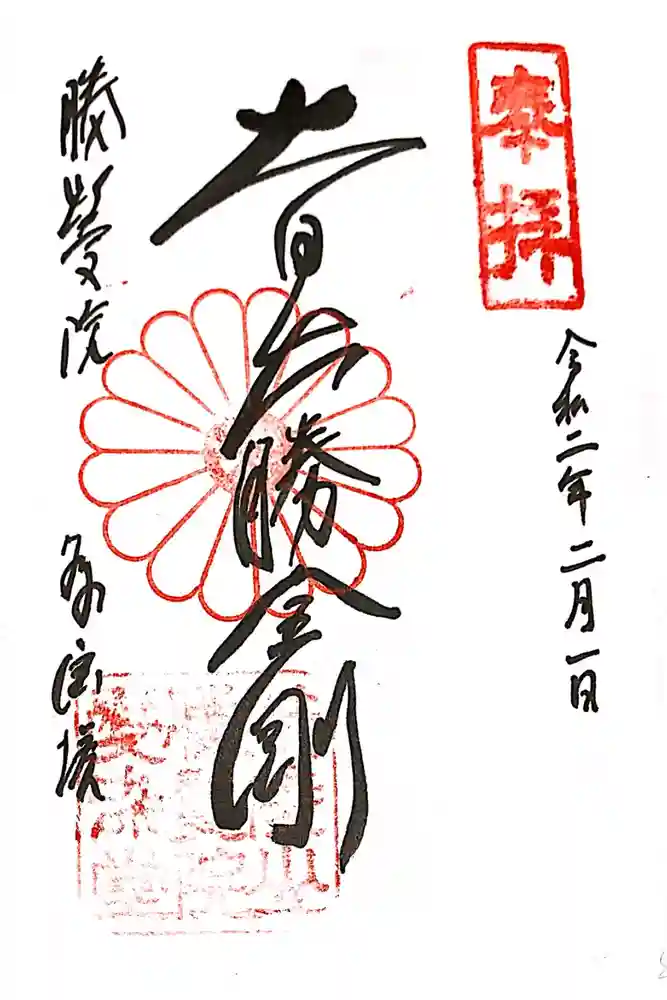 奉拝
令和二年二月一日
大日大勝金剛
勝鬘院 多宝塔